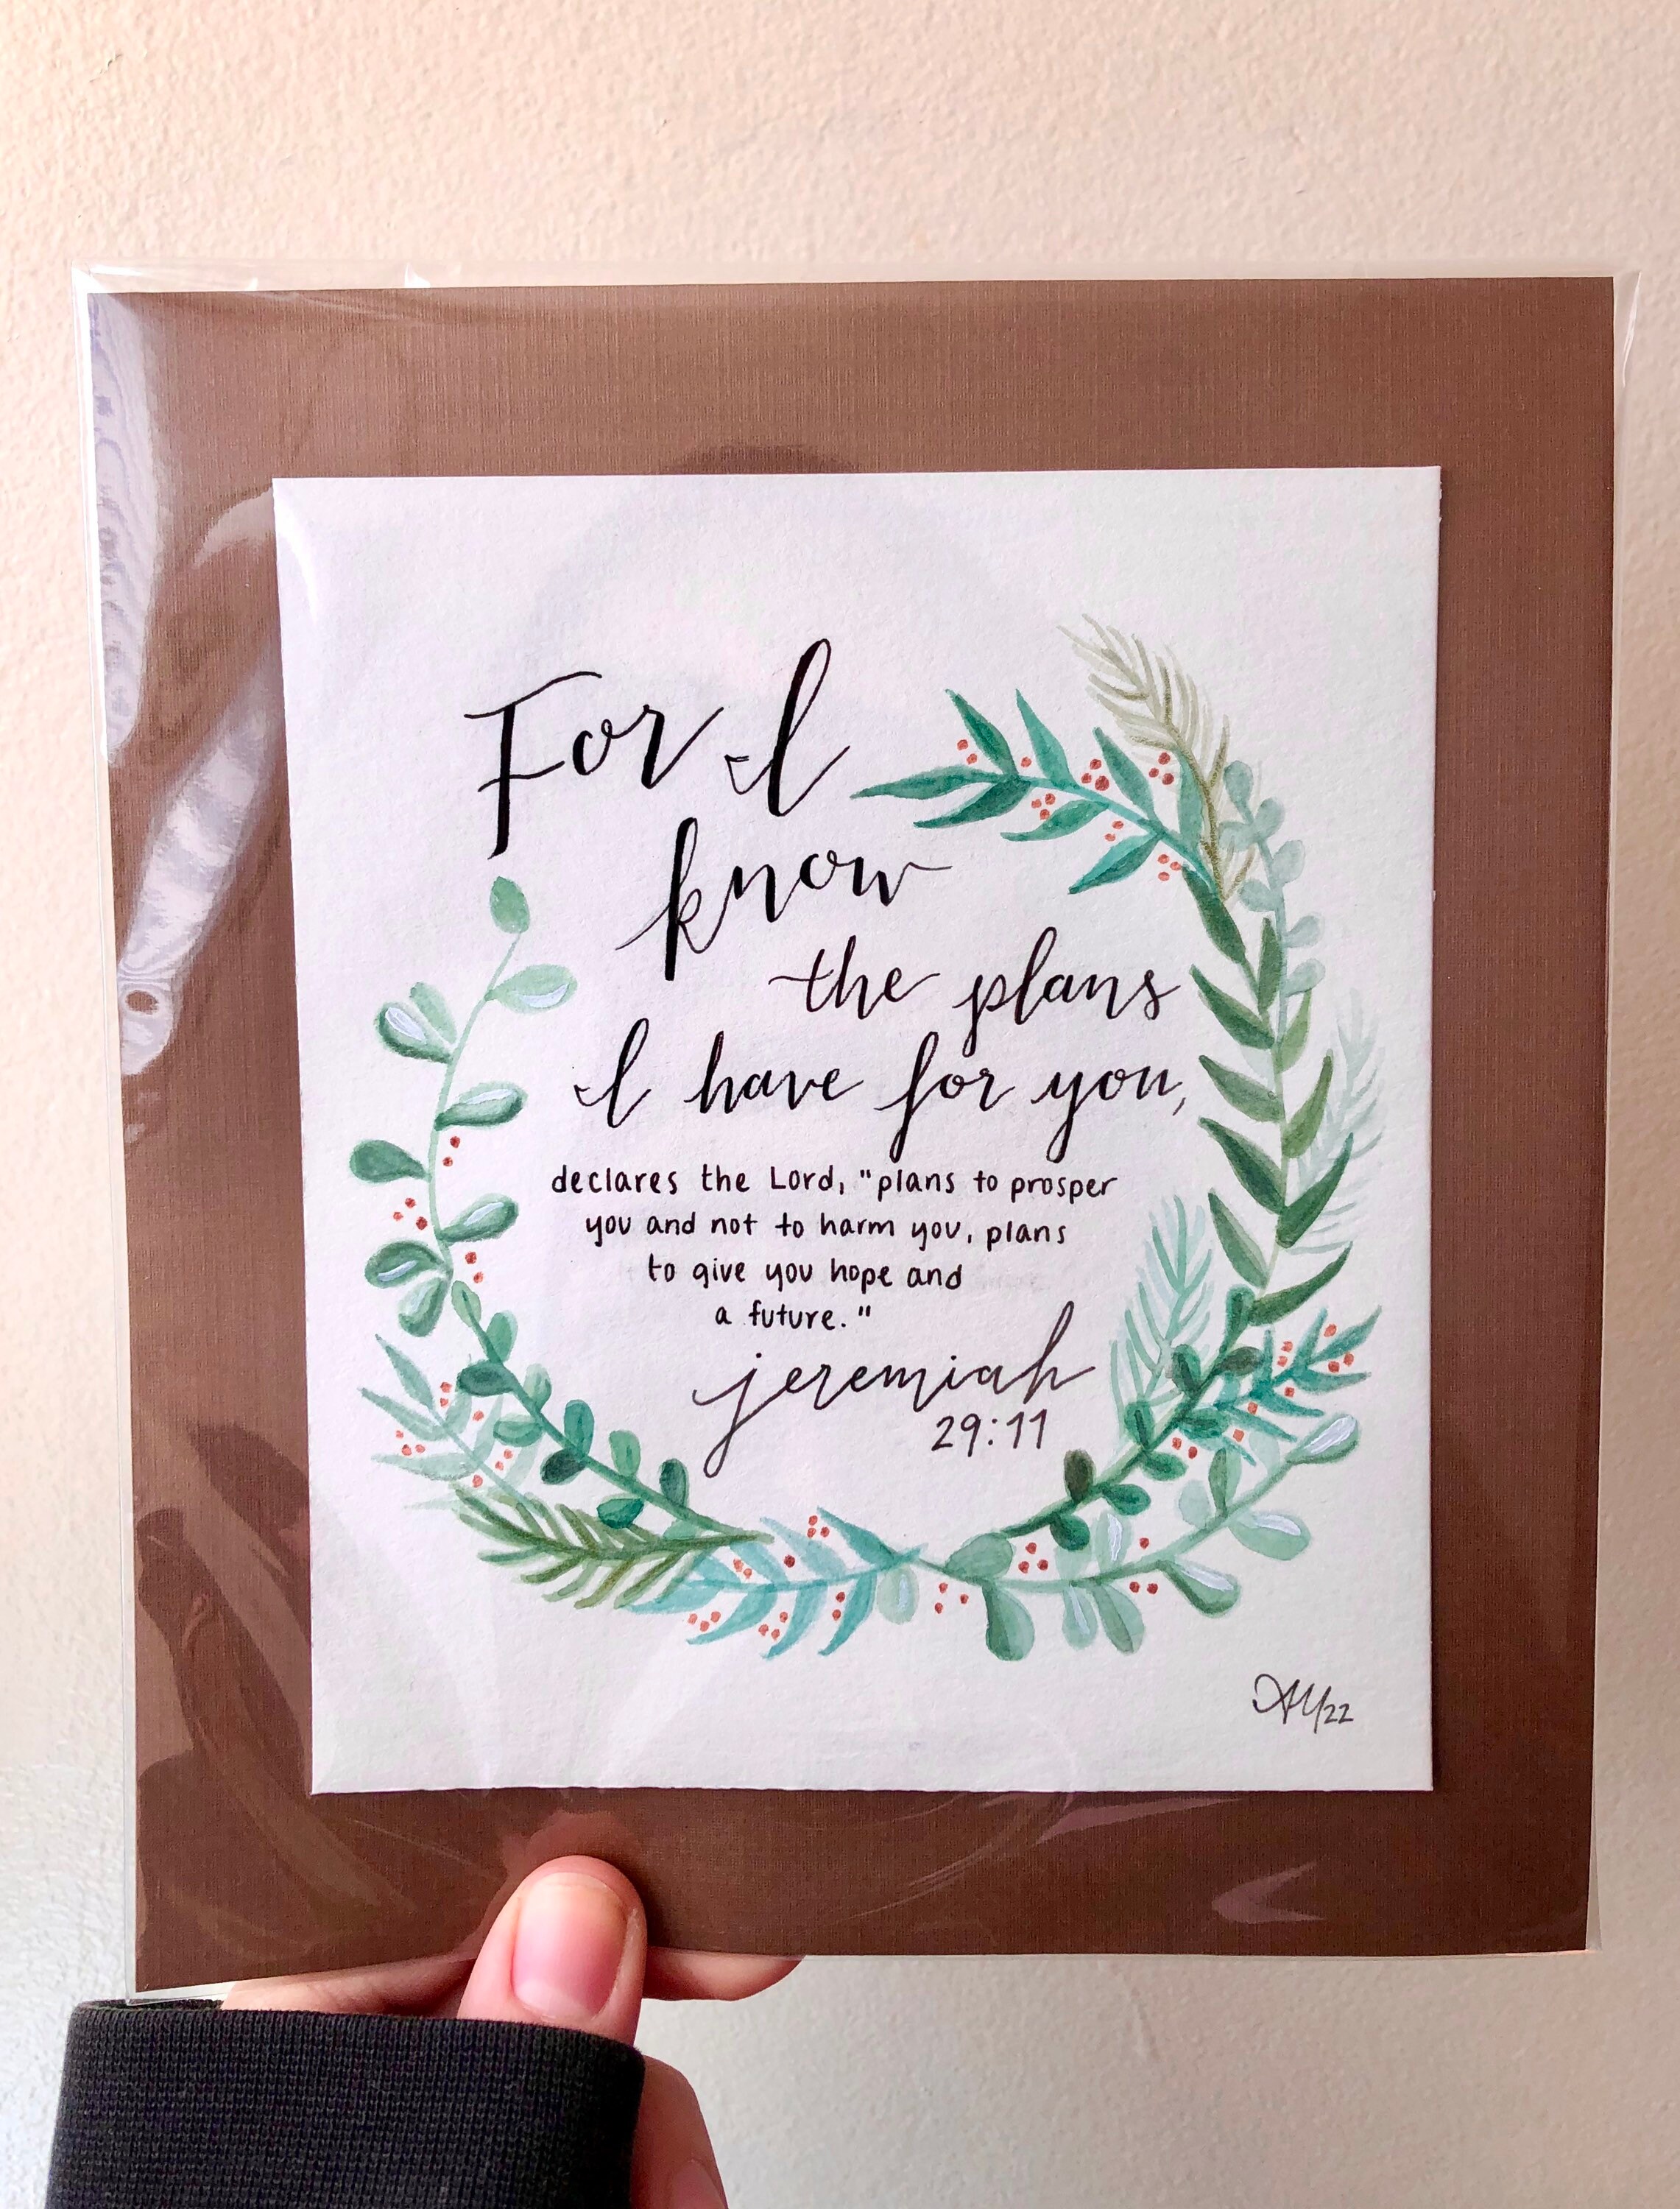 For I
know
the plans
I have for you,
declares the Lord, "plans to prosper
you and not to harm you, plans
to give you hope and
a future."
jeremiah
29:11
AY/22